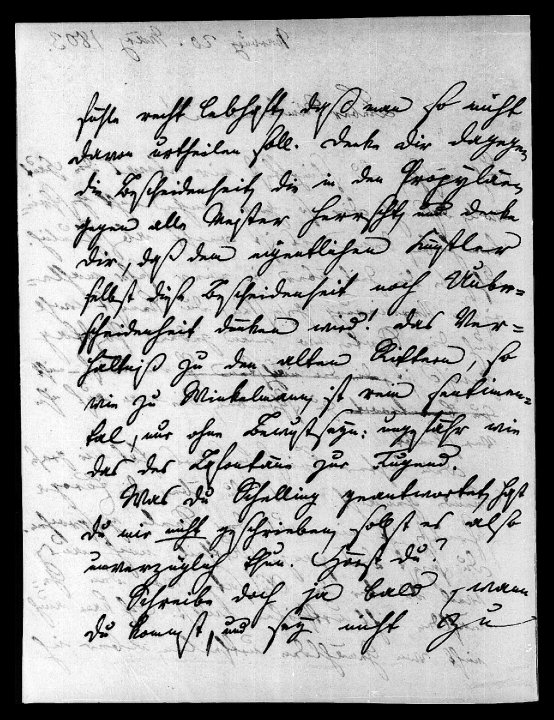 fühle recht lebhaft, daß man so nicht
davon urtheilen soll. Denke dir dagegen
die Bescheidenheit, die in den Propyläen
gegen alle Meister herrscht, und denke
dir, daß dem eigentlichen Künstler
selbst diese Bescheidenheit noch Unbe-
scheidenheit dünken wird! Das Ver-
hältniß zu den alten Rittern, so
wie zu Winkelmann, ist rein sentimen-
tal, nur ohne Bewustseyn: ungefähr wie
das des zur Tugend.
Was du Schelling geantwortet hast
du mir nicht geschrieben, sollst es also
unverzüglich thun. Hörst du?
Schreibe doch ja bald, wann
du kommst, und sey nicht zu